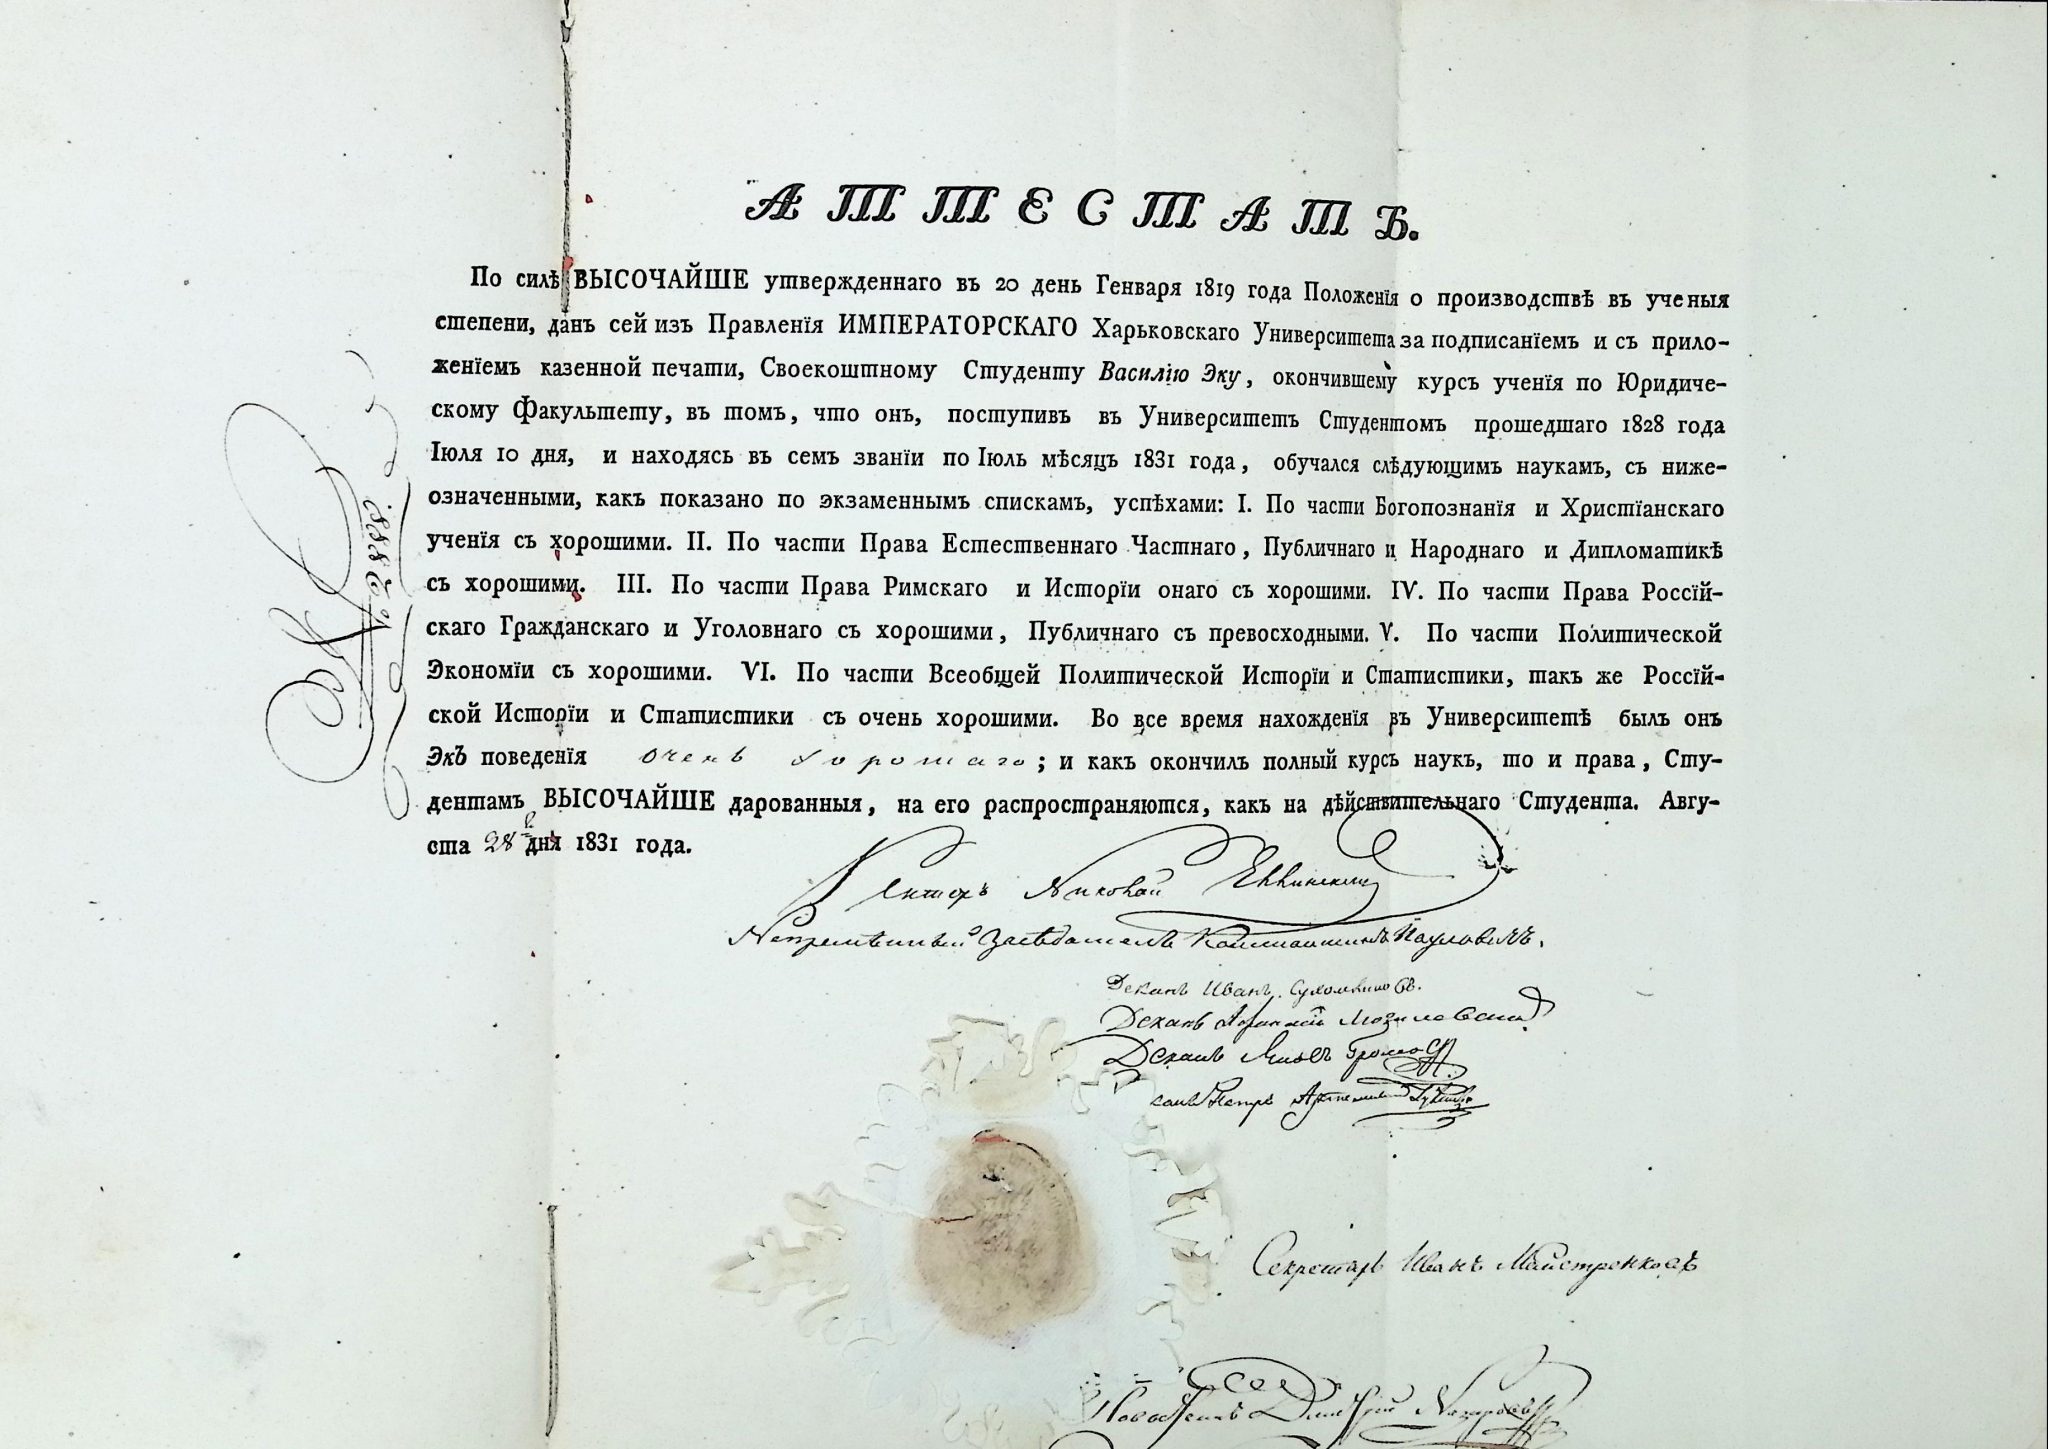 АТТЕСТАТЪ.
По силѣ ВЫСОЧАЙШЕ утвержденнаго въ 20 день Генваря 1819 года Положенія о производствѣ въ ученыя
степени, данъ сей изъ Правленія ИМПЕРАТОРСКАГО Харьковскаго Университета за подписаніемъ и съ прило-
женіемъ казенной печати, Своекоштному Студенту Василію Эку, окончившему курсъ ученія по Юридиче-
скому Факультету, въ томъ, что онъ, поступивъ въ Университетъ Студентомъ прошедшаго 1828 года
Іюля 10 дня, и находясь въ семъ званіи по Іюль мѣсяцъ 1831 года, обучался слѣдующимъ наукамъ, съ ниже-
означенными, какъ показано по экзаменнымъ спискамъ, успѣхами: I. По части Богопознанія и Христіанскаго
ученія съ хорошими. II. По части Права Естественнаго Частнаго, Публичнаго и Народнаго и Дипломатикѣ
съ хорошими. III. По части Права Римскаго и Исторіи онаго съ хорошими. IV. По части Права Россій-
скаго Гражданскаго и Уголовнаго съ хорошими, Публичнаго съ превосходными. V. По части Политической
Экономіи съ хорошими. VI. По части Всеобщей Политической Исторіи и Статистики, такъ же Россій-
ской Исторіи и Статистики съ очень хорошими. Во все время нахожденія въ Университетѣ былъ онъ
Экъ поведенія очень хорошаго; и какъ окончилъ полный курсъ наукъ, то и права, Сту-
дентамъ ВЫСОЧАЙШЕ дарованныя, на его распространяются, какъ на дѣйствительнаго Студента. Авгу-
ста 28 дня 1831 года.
Ректоръ Николай Еллинскій
Непремѣнный Засѣдатель Константинъ Пауловичъ.
Деканъ Иванъ Сухомлиновъ.
Деканъ Афанасій Могилевскій
Деканъ Яковъ Громовъ
Петръ Артемовскій Гулакъ
Секретарь Иванъ Майстренковъ